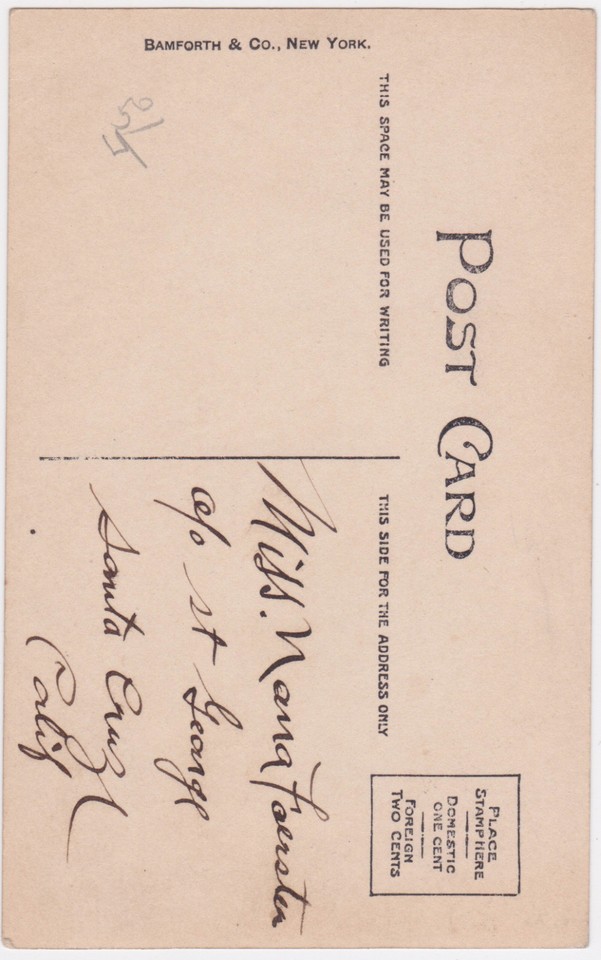 POST CARD
THIS SPACE MAY BE USED FOR WRITING
THIS SIDE FOR THE ADDRESS ONLY
PLACE
STAMP HERE
DOMESTIC
ONE CENT
FOREIGN
TWO CENTS
BAMFORTH & CO., NEW YORK.
Miss. Nana Foersten
c/o St George
Santa Cruz
Calif